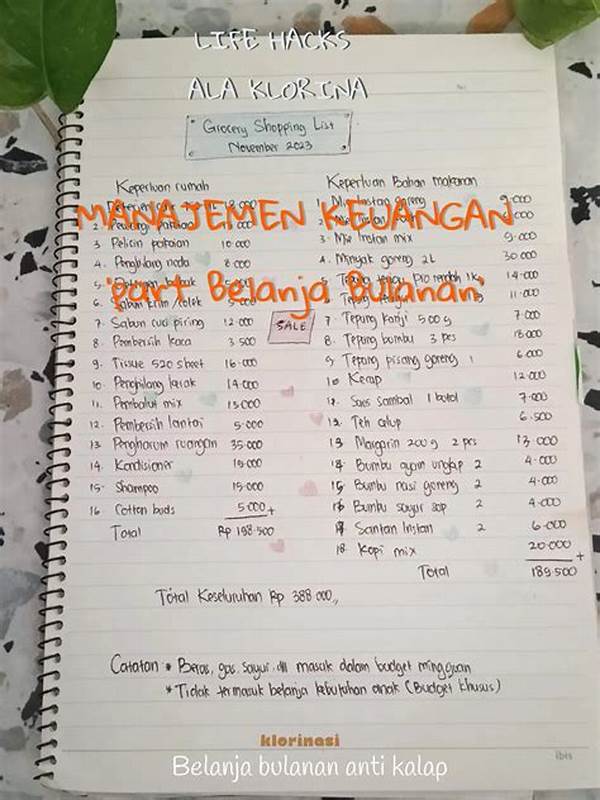 LIFE HACKS
ALA KLORINA
Grocery Shopping List
November 2023
Keperluan rumah
2.
3 Pelicin pakaian 10.000
4. Penghilang noda 8.000
5.
6. Sabun krim/colek
7. Sabun cuci piring 12.000
8. Pembersih kaca 3.500
9. Tissue 520 sheet 16.000
10. Penghilang kerak 14.000
11. Pembalut mix 13.000
12. Pembersih lantai 5.000
13 Pengharum ruangan 35.000
14. Kondisioner
15. Shampoo 15.000
16 Cotton buds 5.000 +
Total Rp 198.500
Keperluan Bahan makanan
1. Mie Instan goreng 9.000
3. Mie Instan mix 9.000
4. Minyak goreng 2L 30.000
5. 14.000
11.000
7. Tepung Kanji 500 g 7.000
8. Tepung bumbu 3 pcs
9 Tepung pisang goreng 1 6.000
10 Kecap 12.000
Saos sambal 1 botol
12. Teh celup 6.500
13 Margarin 200 g 2 pcs 13.000
Bumbu ayam ungkep 2 4.000
Bumbu nasi goreng 2 4.000
Bumbu sayur sop 2 4.000
Santan Instan 2 6.000
18. Kopi mix 20.000 +
Total 189.500
MANAJEMEN KEUANGAN
"part Belanja Bulanan"
SALE
Total Keseluruhan Rp 388.000,,
Catatan * Beras, gas, sayur dll masuk dalam budget mingguan
* Tidak termasuk belanja kebutuhan anak (Budget khusus)
klorinasi
ibis
Belanja bulanan anti kalap